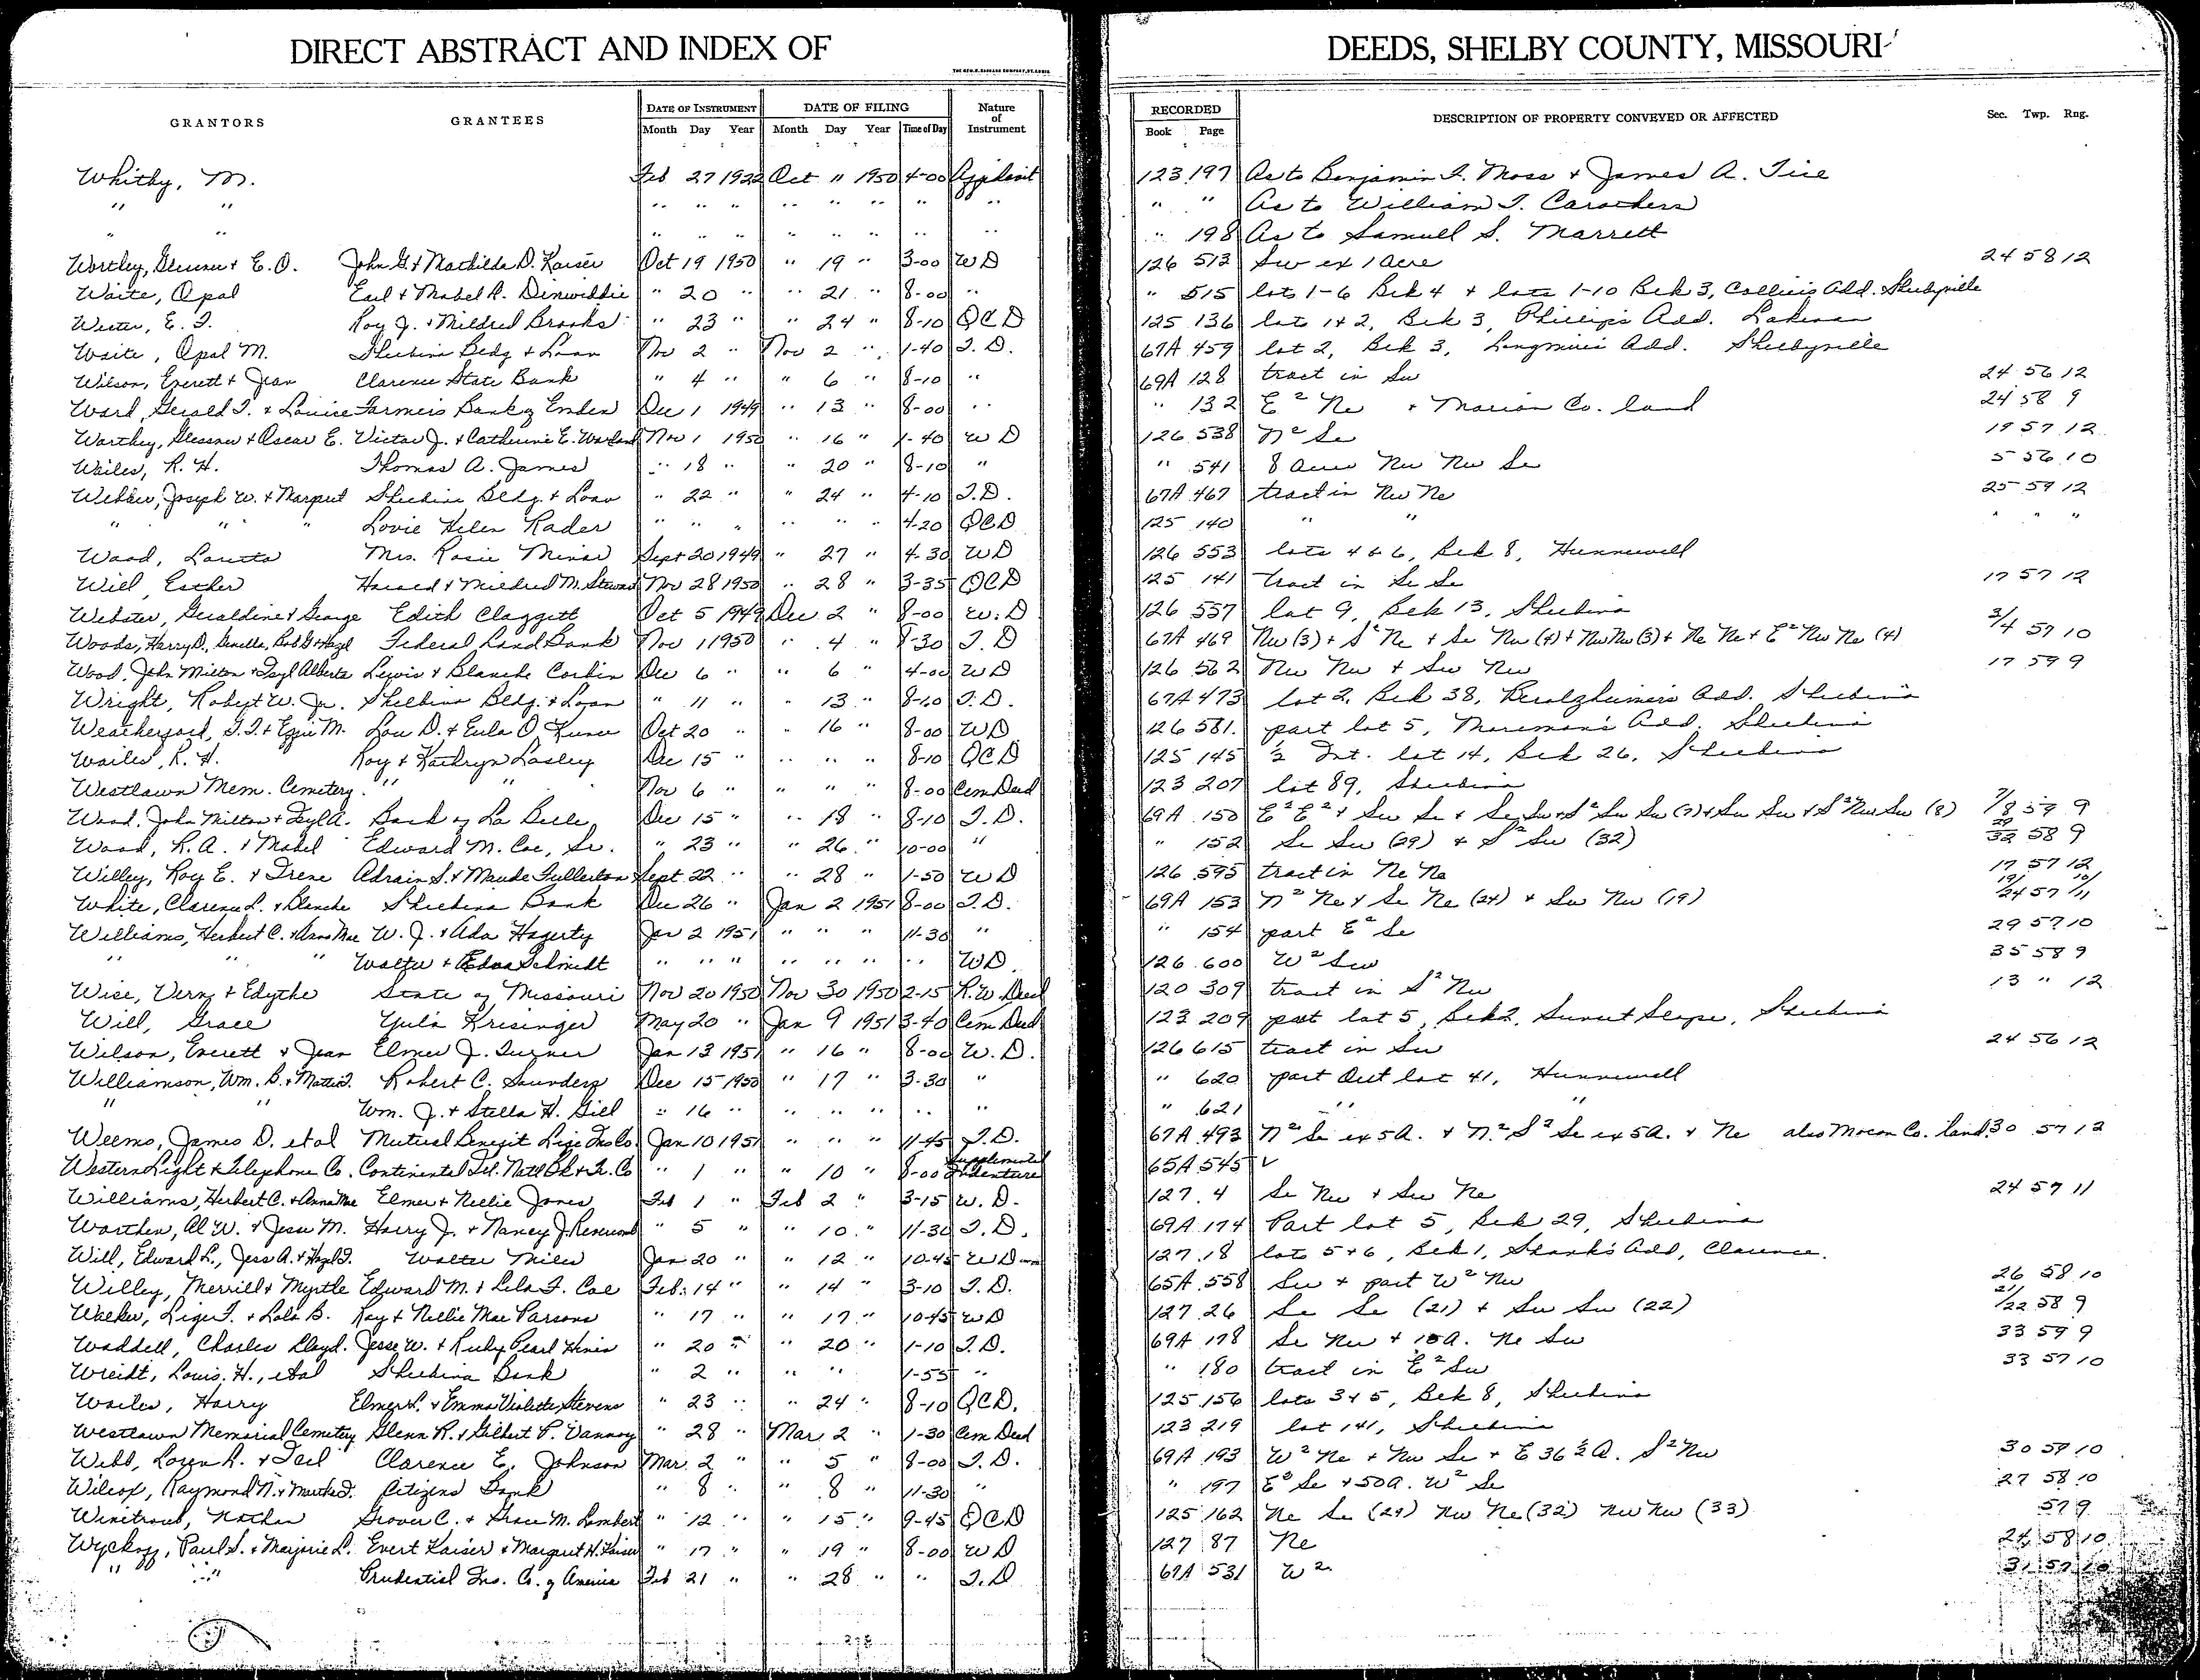 DIRECT ABSTRACT AND INDEX OF DEEDS, SHELBY COUNTY, MISSOURI
GRANTORS GRANTEES DATE OF INSTRUMENT DATE OF FILING Nature of Instrument RECORDED DESCRIPTION OF PROPERTY CONVEYED OR AFFECTED Sec. Twp. Rng.
Month Day Year Month Day Year Time of Day Book Page
Whitby, M. Feb 27 1922 Oct 11 1950 4-00 Affidavit 123 197 As to Benjamin F. Moss + James A. Tice
" " " " " " " " " " " " As to William T. Carothers
" " " " " " " " " " " 198 As to Samuel S. Marrett
Worthey, Glessner + E. O. John G. + Mathilda D. Kaiser Oct 19 1950 " 19 " 3-00 WD 126 513 Sw ex 1 acre 24 58 12
Waite, Opal Earl + Mabel R. Dinwiddie " 20 " " 21 " 8-00 " " 515 lots 1-6 Blk 4 + lots 1-10 Blk 3, Collier's Add. Shelbyville
Wester, E. F. Roy J. + Mildred Brooks " 23 " " 24 " 8-10 QCD 125 136 lots 1+2, Blk 3, Phillips Add. Lakenan
Waite, Opal M. Shelbina Bldg + Loan Nov 2 " Nov 2 " 1-40 T.D. 67A 459 lot 2, Blk 3, Add. Shelbyville
Wilson, Everett + Jean Clarence State Bank " 4 " " 6 " 8-10 " 69A 128 tract in Sw 24 56 12
Ward, Gerald T. + Louise Farmers Bank of Emden Dec 1 1949 " 13 " 8-00 " " 132 E² Ne + Marion Co. land 24 58 9
Worthey, Glessner + Oscar E. Victor J. + Catherine E. Nov 1 1950 " 16 " 1-40 WD 126 538 N² Se 19 57 12
Wailes, R. H. Thomas A. James " 18 " " 20 " 8-10 " " 541 8 acres Nw Nw Se 5 56 10
Webber, Joseph W. + Margaret Shelbina Bldg. + Loan " 22 " " 24 " 4-10 T.D. 67A 467 tract in Nw Ne 25 59 12
" " " Lovie Helen Rader " " " " " " 4-20 QCD 125 140 " " " " "
Wood, Loretta Mrs. Rosie Minor Sept 20 1949 " 27 " 4-30 WD 126 553 lots 4 & 6, Blk 8, Hunnewell
Will, Esther + Mildred M. Nov 28 1950 " 28 " 3-35 QCD 125 141 tract in Se Se 17 57 12
Webster, Geraldine + George Edith Claggett Oct 5 1949 Dec 2 " 8-00 W.D 126 557 lot 9, Blk 13, Shelbina
Woods, Harry D., Federal Land Bank Nov 1 1950 " 4 " 8-30 T.D 67A 469 Nw (3) + S² Ne + Se Nw (4) + Nw Nw (3) + Ne Ne + E² Nw Ne (4) 3/4 57 10
Wood, John Milton + Fayl Alberta Lewis + Blanche Corbin Dec 6 " " 6 " 4-00 WD 126 562 Nw Nw + Sw Nw 17 59 9
Wright, Robert W. Jr. Shelbina Bldg. + Loan " 11 " " 13 " 8-10 T.D. 67A 473 lot 2, Blk 38, Add. Shelbina
Weatherford, T. T. + Effie M. Lou D. + Eula O. Oct 20 " " 16 " 8-00 WD 126 581 part lot 5, Add. Shelbina
Wailes, R. H. Roy + Kathryn Lasley Dec 15 " " " " 8-10 QCD 125 145 ½ Int. lot 14, Blk 26, Shelbina
Westlawn Mem. Cemetery " " Nov 6 " " " " 8-00 Cem Deed 123 207 lot 89, Shelbina
Wood, John Milton + Fayl A. Bank of La Belle Dec 15 " " 18 " 8-10 T.D. 69A 150 E² E² + Sw Se + Se Sw + S² Sw Sw (7) + Sw Sw + S² Nw Sw (8) 7/8 59 9
Wood, R. A. + Mabel Edward M. Coe, Sr. " 23 " " 26 " 10-00 " " 152 Se Sw (29) + S² Sw (32) 29 32 58 9
Willey, Roy E. + Irene Adrain S. + Maude Fullerton Sept 22 " " 28 " 1-50 WD 126 595 tract in Ne Ne 17 57 12
White, Clarence L. + Blanche Shelbina Bank Dec 26 " Jan 2 1951 8-00 T.D. 69A 153 N² Ne + Se Ne (24) + Sw Nw (19) 19/24 57 10/11
Williams, Herbert C. + Anna Mae W. J. + Ada Hagerty Jan 2 1951 " " " 11-30 " " 154 part E² Se 29 57 10
" " " Walter + Edna Schmidt " " " " " " " WD. 126 600 W² Sw 35 58 9
Wise, Verny + Edythe State of Missouri Nov 20 1950 Nov 30 1950 2-15 R.W. Deed 120 309 tract in S² Nw 13 " 12
Will, Grace Yula Krisinger May 20 " Jan 9 1951 3-40 Cem Deed 123 209 part lot 5, Blk 2, Sunset Slope, Shelbina
Wilson, Everett + Jean Elmer J. Turner Jan 13 1951 " 16 " 8-00 W.D. 126 615 tract in Sw 24 56 12
Williamson, Wm. B. + Mattie F. Robert C. Saunders Dec 15 1950 " 17 " 3-30 " " 620 part Out lot 41, Hunnewell
" " Wm. J. + Stella H. Gill " 16 " " " " " " " 621 " "
Weems, James D. et al Mutual Benefit Life Ins Co. Jan 10 1951 " " " 11-45 T.D. 67A 493 N² Se ex 5A. + N² S² Se ex 5A. + Ne also Macon Co. land 30 57 12
Western Light & Telephone Co. Continental Ill. Natl Bk & Tr. Co " 1 " " 10 " 8-00 Supplemental Indenture 65A 545 ✓
Williams, Herbert C. + Anna Mae Elmer + Nellie Jones Feb 1 " Feb 2 " 3-15 W.D. 127 4 Se Nw + Sw Ne 24 57 11
Worthen, Al W. + Jesse M. Harry J. + Nancy J. " 5 " " 10 " 11-30 T.D. 69A 174 Part lot 5, Blk 29, Shelbina
Will, Edward L., Jess A. + Hazel F. Walter Miles Jan 20 " " 12 " 10-45 WD 127 18 lots 5+6, Blk 1, Shanks Add, Clarence.
Willey, Merrill + Myrtle Edward M. + Lela F. Coe Feb. 14 " " 14 " 3-10 T.D. 65A 558 Sw + part W² Nw 26 58 10
Walker, Liger F. + Lola B. Ray + Nellie Mae Parsons " 17 " " 17 " 10-45 WD 127 26 Se Se (21) + Sw Sw (22) 21/22 58 9
Waddell, Charles Lloyd. Jesse W. + Ruby Pearl " 20 " " 20 " 1-10 T.D. 69A 178 Se Nw + 15A. Ne Sw 33 59 9
Wreidt, Louis. H., et al Shelbina Bank " 2 " " " 1-55 " " 180 tract in E² Sw 33 57 10
Wailes, Harry Elmer L. + Emma Violette Stevens " 23 " " 24 " 8-10 QCD. 125 156 lots 3+5, Blk 8, Shelbina
Westlawn Memorial Cemetery Glenn R. + Gilbert P. Vannoy " 28 " Mar 2 " 1-30 Cem Deed 123 219 lot 141, Shelbina
Webb, Loren R. + Clarence E. Johnson Mar. 2 " " 5 " 8-00 T.D. 69A 193 W² Ne + Nw Se + E 36½ A. S² Nw 30 59 10
Wilcox, Raymond N. + Martha J. Citizens Bank " 8 " " 8 " 11-30 " " 197 E² Se + 50A. W² Se 27 58 10
Nathan Grover C. + Grace M. Lambert " 12 " " 15 " 9-45 QCD 125 162 Ne Se (29) Nw Ne (32) Nw Nw (33) 57 9
Wyckoff, Paul S. + Marjorie L. Evert Kaiser + Margaret H. Kaiser " 17 " " 19 " 8-00 WD 127 87 Ne 24 58 10
" " Prudential Ins. Co. of America Feb 21 " " 28 " " T.D 67A 531 W² 31 57 10